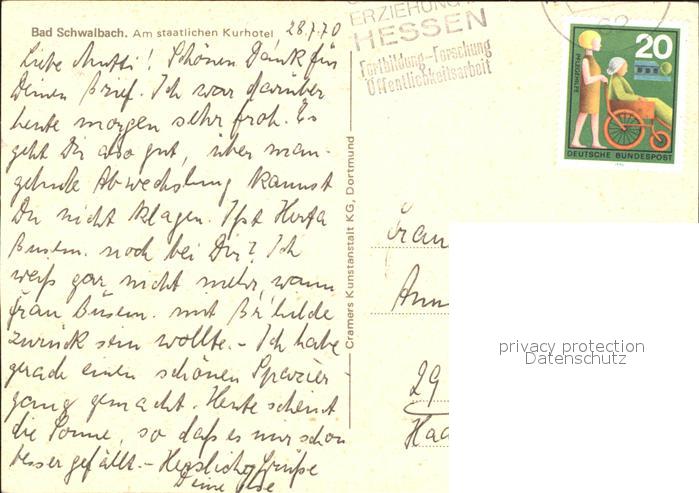 Bad Schwalbach. Am staatlichen Kurhotel
28.7.70
Liebe Mutti! Schönen Dank für
Deinen Brief. Ich war darüber
heute morgen sehr froh. Es
geht Dir also gut, über man-
gelnde Abwechslung kannst
Du nicht klagen. Ist Herta
Busem. noch bei Dir? Ich
weiß gar nicht mehr, wann
Frau Busem. mit Br'hilde
zurück sein wollte. - Ich habe
gerade einen schönen Spazier-
gang gemacht. Heute scheint
die Sonne, so daß es mir schon
besser gefällt. - Herzliche Grüße
Deine
Cramers Kunstanstalt KG, Dortmund
ERZIEHUNG
HESSEN
Fortbildung-Forschung
Öffentlichkeitsarbeit
62
20
PFLEGEHILFE
DEUTSCHE BUNDESPOST
Frau
29
privacy protection
Datenschutz